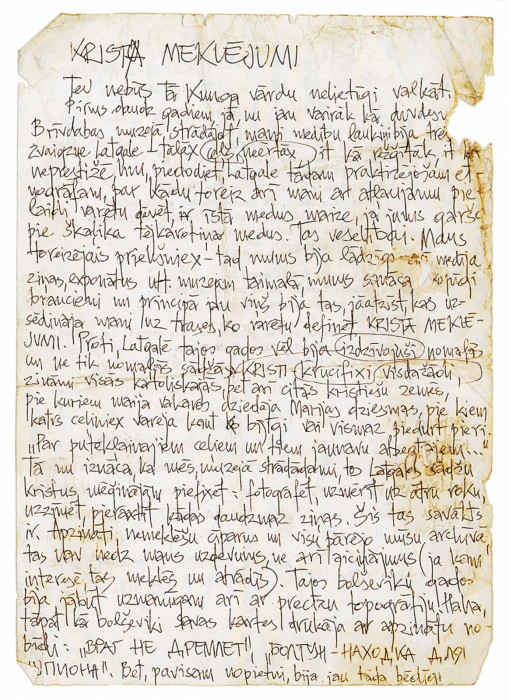 KRISTA MEKLĒJUMI
Tev nebūs tā Kunga vārdu nelietīgi valkāt.
Pirms daudz gadiem, jā nu jau vairāk kā divdes
Brīvdabas muzejā strādājot, mani medību lauki bija trejz
zvaigzne Latgale - tālāx (alš neērtāx) it kā režģītāk, it
neprestižē nu, piedodiet, Latgale tādam praktizējošam et-
nogrāfam, par kādu toreiz arī mani ar atļaujamu pie
laidi varētu dēvēt, ir īstā medus maize, ja jums garšo
pie skaļika tējkarotīna medus. Tas veselību. Mūsu
toreizējais priekšniex - tad mums bija lādzīgs arī medīja
ziņas, exponātus utt. muzejam tajmalā, mums savāca kopīgi
braucieni un principā jau viņš bija tas, jāatzīst, kas uz-
sēdināja mani uz trases, ko varētu definēt KRISTA MEKLĒ-
JUMI. Proti, Latgalē tajos gados vēl bija izdzīvojuši nomaļās
un ne tik nomaļās sādžāx KRISTI (krucifixi) visdažādi,
zināmi visās katoliskajās, bet arī citās kristiešu zemēs,
pie kuriem maija vakaros dziedāja Marijas dziesmas, pie kuriem
katrs celiniex varēja kaut ko bijīgi vai vismaz piedurt pieri.
"Par putekļainajiem ceļiem un tiem jaunavu atspertajiem..."
Tā nu iznāca, ka mēs, muzejā strādādami, to Latgales sādžu
kristus mēģinājām piefixēt: fotografēt, uzmērīt uz ātru roku,
uzzīmēt, pierakstīt kādas daudzmaz ziņas. Šis tas savākts
ir. Apzināti, nemeklēšu ciparus un visu pārējo mūsu arhīvā,
tas nav nedz mans uzdevums, ne arī aicinājums (ja kam
interesē, tas meklēs un atradīs). Tajos boļševiku gados
bija jābūt uzmanīgam arī ar precīzu topogrāfiju. Haha,
tāpat kā boļševiki savas kartes drukāja ar apzinātu no-
bīdi: "ВРАГ НЕ ДРЕМЛЕТ" "БОЛТУН - НАХОДКА ДЛЯ
"ШПИОНА". Bet, pavisam nopietni, bija jau tāda bēdīgi